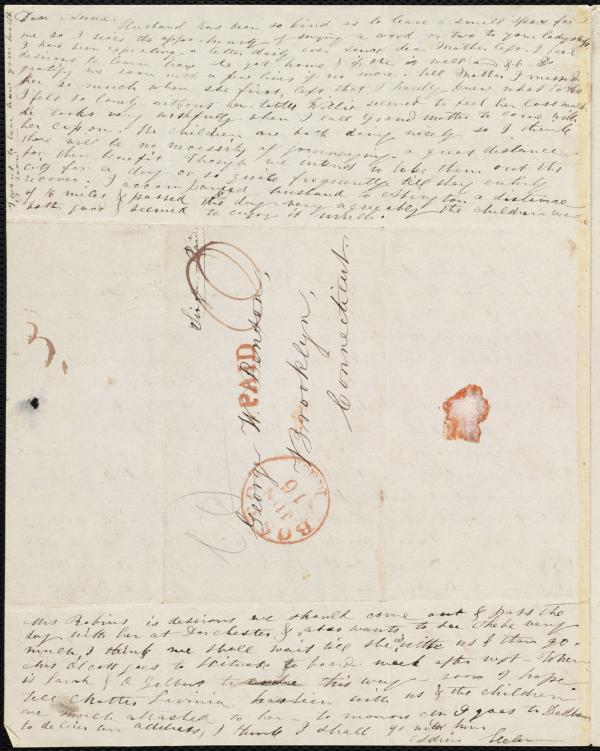 Dear Anna.
Husband has been so kind as to leave a small space for
me so I seize the opportunity of saying a word or two to your ladyship
I have been expecting a letter daily ever since dear Mother left. I feel
desirous to learn how she got home & if she is well and &c. Do
gratify me soon with a few lines if no more. tell Mother I missed
her so much when she first left that I hardly knew what to do
I felt so lonely without her. Little Willie seemed to feel her loss much
he looks very wishfully when I call Grandmother to come with
her cap on. The children are both doing nicely so I think
there will be no necessity of journeying a great distance
for their benefit though we intend to take them out the
city for a day or so quite frequently till they entirely
recover. I accompanied husband to Abington a distance
of 16 miles & passed the day very agreeably the children were
both good & seemed to enjoy it much.
Single
PAID
George W. Benson,
Brooklyn,
Connecticut.
BOSTON
JUN
16
Mrs Robins is desirous we should come out & pass the
day with her at Dorchester & also wants to see Thebe very
much, I think we shall wait till she is with us & then go. When
Mrs Alcott goes to Scituate to board week after next
is Sarah & O Gilbert this way soon I hope
tell Lavinia has been with us & the children
are much attached to her to morrow I goes to Dedham
to deliver an address, I think I shall go with him